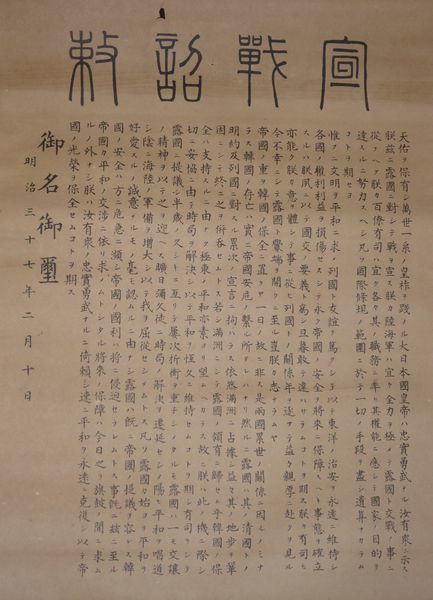 宣戰詔敕
天佑ヲ保有シ萬世一系ノ皇祚ヲ踐メル大日本國皇帝ハ忠實勇武ナル汝有衆ニ示ス
朕茲ニ露國ニ對シテ戰ヲ宣ス朕カ陸海軍ハ宜ク全力ヲ極メテ露國ト交戰ノ事ニ
從フヘク朕カ百僚有司ハ宜ク各々其ノ職務ニ率ヒ其ノ權能ニ應シテ國家ノ目的ヲ
達スルニ努力スヘシ凡ソ國際條規ノ範圍ニ於テ一切ノ手段ヲ盡シ遺算ナカラム
コトヲ期セヨ
惟フニ文明ヲ平和ニ求メ列國ト友誼ヲ篤クシテ以テ東洋ノ治安ヲ永遠ニ維持シ
各國ノ權利利益ヲ損傷セスシテ永ク帝國ノ安全ヲ將來ニ保障スヘキ事態ヲ確立
スルハ朕夙ニ以テ國交ノ要義ト爲シ旦暮敢テ違ハサラムコトヲ期ス朕カ有司モ
亦能ク朕カ意ヲ體シテ事ニ從ヒ列國トノ關係年ヲ逐フテ益々親厚ニ赴クヲ見ル
今不幸ニシテ露國ト釁端ヲ開クニ至ル豈朕カ志ナラムヤ
帝國ノ重ヲ韓國ノ保全ニ置クヤ一日ノ故ニ非ス是レ兩國累世ノ關係ニ因ルノミナ
ラス韓國ノ存亡ハ實ニ帝國安危ノ繋ル所タレハナリ然ルニ露國ハ其ノ清國トノ
明約及列國ニ對スル累次ノ宣言ニ拘ハラス依然滿洲ニ占據シ益々其ノ地歩ヲ鞏
固ニシテ終ニ之ヲ併呑セムトス若シ滿洲ニシテ露國ノ領有ニ歸セン乎韓國ノ保
全ハ支持スルニ由ナク極東ノ平和亦素ヨリ望ムヘカラス故ニ朕ハ此ノ機ニ際シ
切ニ妥協ニ由テ時局ヲ解決シ以テ平和ヲ恆久ニ維持セムコトヲ期シ有司ヲシテ
露國ニ提議シ半歳ノ久シキニ亙リテ屢次折衝ヲ重ネシメタルモ露國ハ一モ交讓
ノ精神ヲ以テ之ヲ迎ヘス曠日彌久徒ニ時局ノ解決ヲ遷延セシメ陽ニ平和ヲ唱道
シ陰ニ海陸ノ軍備ヲ増大シ以テ我ヲ屈從セシメムトス凡ソ露國カ始ヨリ平和ヲ
好愛スルノ誠意ナルモノ毫モ認ムルニ由ナシ露國ハ既ニ帝國ノ提議ヲ容レス韓
國ノ安全ハ方ニ危急ニ瀕シ帝國ノ國利ハ將ニ侵迫セラレムトス事既ニ茲ニ至ル
帝國カ平和ノ交渉ニ依リ求メムトシタル將來ノ保障ハ今日之ヲ旗鼓ノ間ニ求ム
ルノ外ナシ朕ハ汝有衆ノ忠實勇武ナルニ倚賴シ速ニ平和ヲ永遠ニ克復シ以テ帝
國ノ光榮ヲ保全セムコトヲ期ス
御名御璽
明治三十七年二月十日